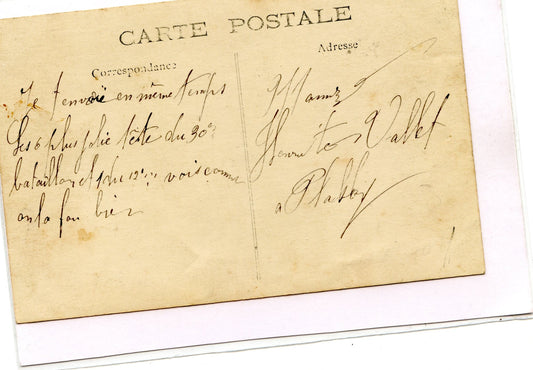 CARTE POSTALE
Correspondance
Adresse
Je t'envoie en même temps
les 6 plus jolie tête du 30e
bataillon et 1 du 12e vois comme
on la fou bien
Henriette Vallet
a